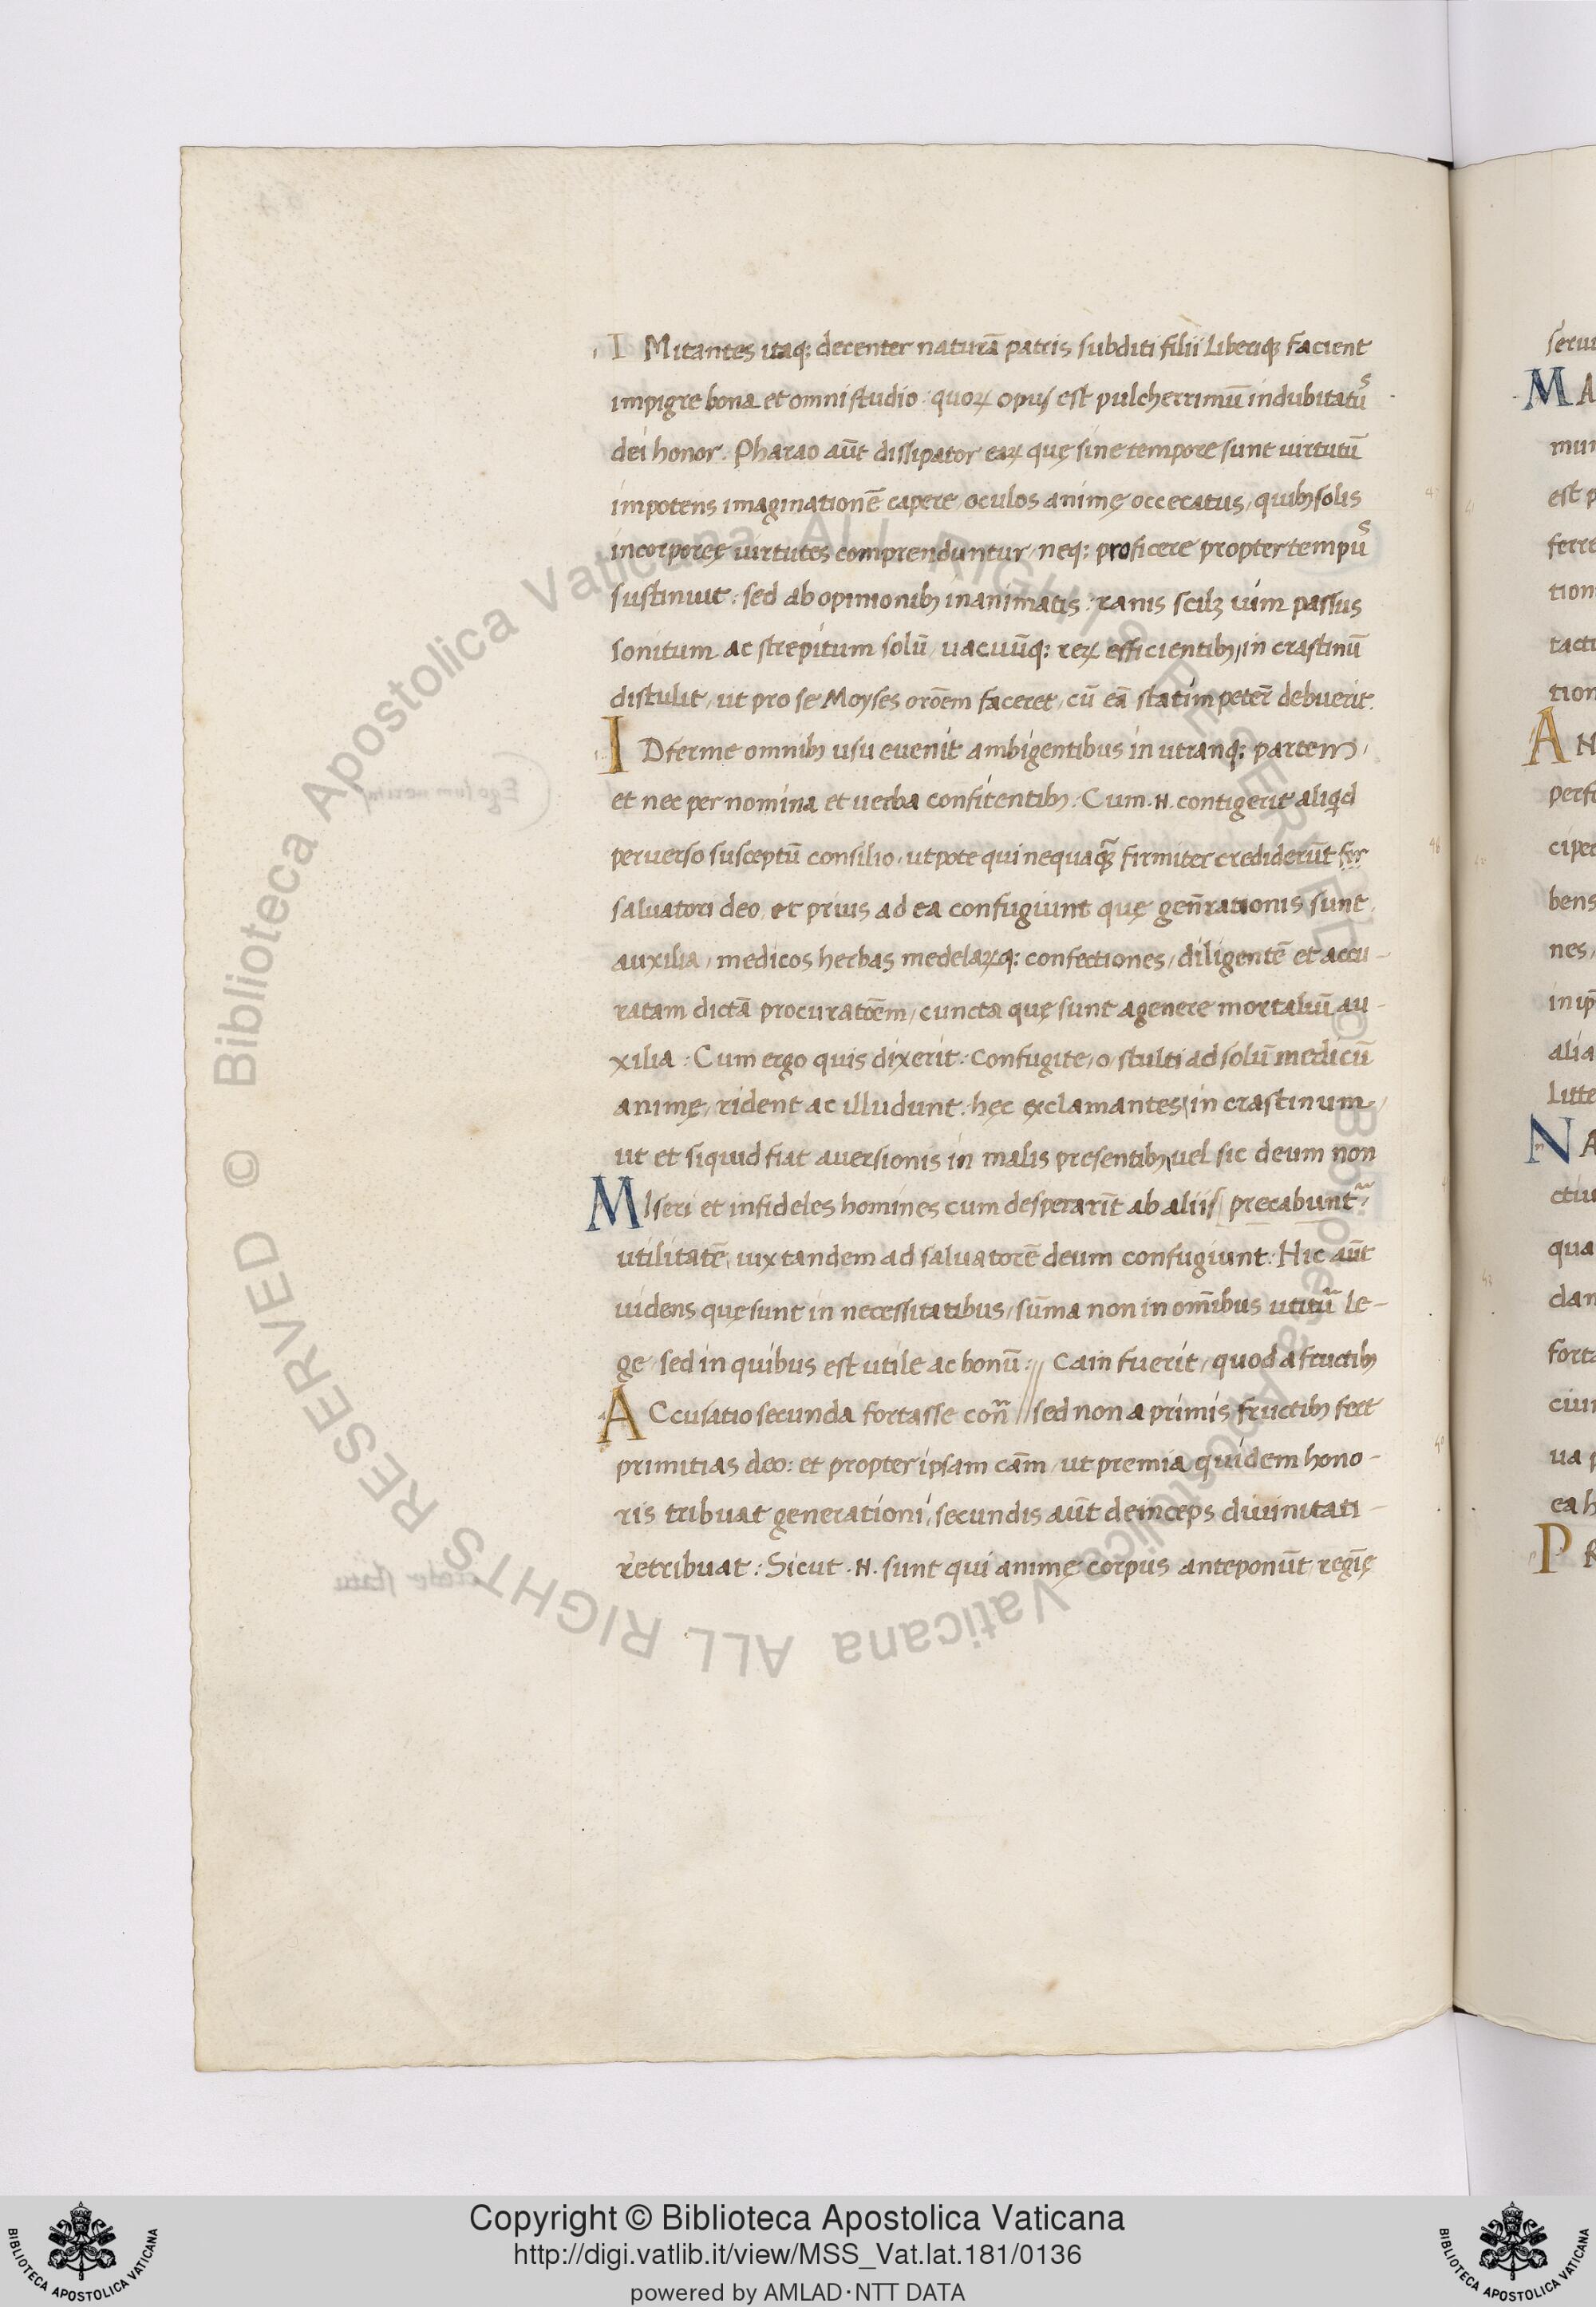 I Mitantes itaq; decenter naturā patris subditi filii liberiq; facient
impigre bona et omni studio: quoꝝ opus est pulcherrimū indubitatūs
dei honor. Pharao aūt dissipator eaꝝ quę sine tempore sunt virtutū
impotens imaginationē capere, oculos animę occecatus, quibꝫ solis
incorporeę virtutes comprenduntur, neq; proficere propter tempūs
sustinuit: sed ab opinionibꝫ inanimatis: ranis scilꝫ vim passus
sonitum ac strepitum solū, vacuūq; reꝝ efficientibꝫ, in crastinū
distulit, ut pro se Moyses orōem faceret, cū eā statim peter̄ debuerit.
I D ferme omnibꝫ usu euenit ambigentibus in utranq; partem,
et nec per nomina et uerba confitentibꝫ. Cum .N. contigerit aliqd
peruerso susceptū consilio, utpote qui nequaq̄ firmiter crediderūt
saluatori deo, et prius ad ea confugiunt quę gen̄rationis sunt
auxilia, medicos herbas medelaꝝq; confectiones, diligentē et accu-
ratam dictā procuratōem, cuncta quę sunt a genere mortaliū au-
xilia: Cum ergo quis dixerit: Confugite, o, stulti ad solū medicū
animę, rident ac illudunt. hęc exclamantes, in crastinum,
ut et siquid fiat auersionis in malis presentibꝫ, uel sic deum non
precabunt᷑.
M Iseri et infideles homines cum desperarīt ab aliis
utilitatē, uix tandem ad saluatorē deum confugiunt. Hic aūt
uidens quę sunt in necessitatibus, sūma non in omībus utitū le-
ge, sed in quibus est utile ac bonū: //
A Ccusatio secunda fortasse cōn̄ // Cain fuerit, quod a fructibꝫ
sed non a primis fructibꝫ fert
primitias deo: et propter ipsam cām, ut premia quidem hono-
ris tribuat generationi, secundis aūt deinceps diuinitati
retribuat: Sicut .N. sunt qui animę corpus anteponūt, regię
Copyright © Biblioteca Apostolica Vaticana
http://digi.vatlib.it/view/MSS_Vat.lat.181/0136
powered by AMLAD·NTT DATA
BIBLIOTECA APOSTOLICA VATICANA
BIBLIOTECA APOSTOLICA VATICANA
© Biblioteca Apostolica Vaticana ALL RIGHTS RESERVED © Biblioteca Apostolica Vaticana ALL RIGHTS RESERVED